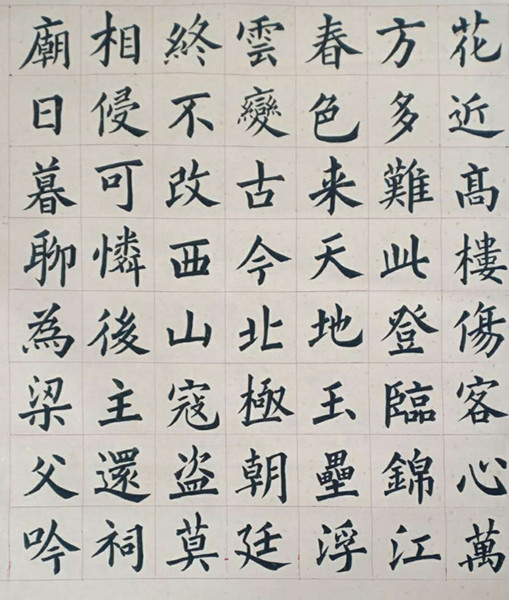 花近髙樓傷客心萬
方多難此登臨錦江
春色来天地玉壘浮
雲變古今北極朝廷
終不改西山寇盗莫
相侵可憐後主還祠
廟日暮聊為梁父吟